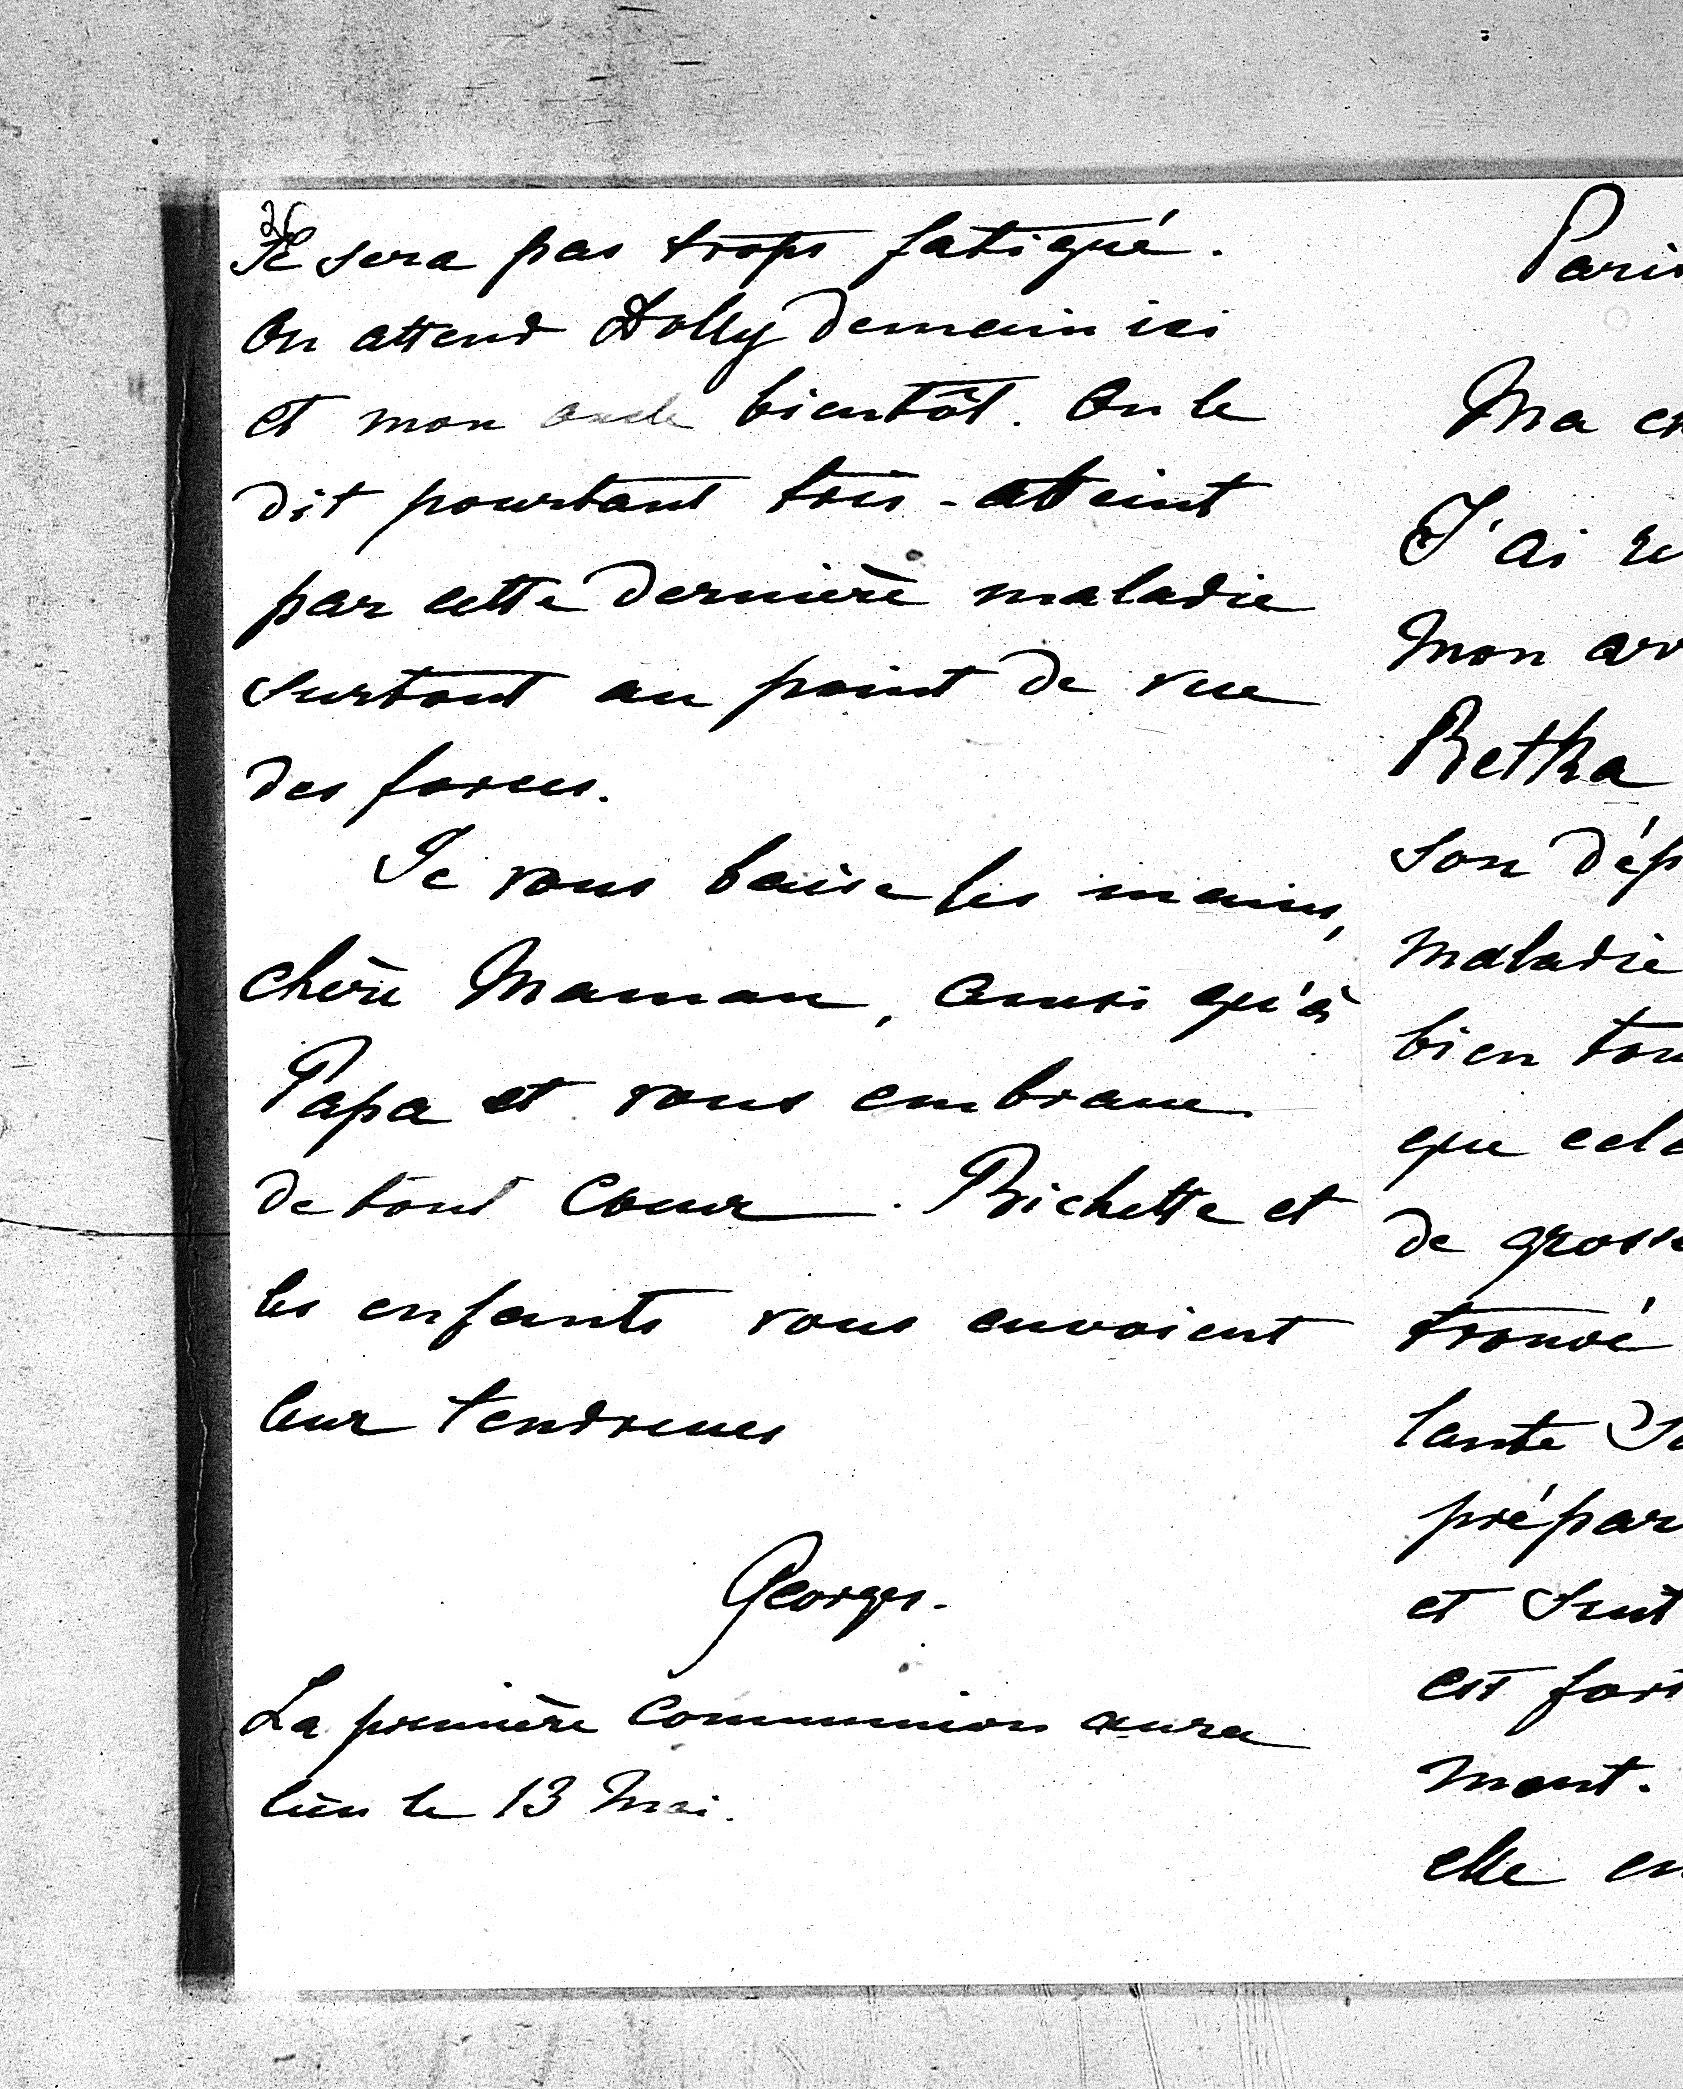 26
Il sera pas trops fatigué.
On attend Dolly demain ici
et mon oncle bientôt. On le
dit pourtant très-atteint
par cette dernière maladie
surtout au point de vue
des forces.
Je vous baise les mains,
chère Maman, ainsi qu'à
Papa et vous embrasse
de tout coeur. Bichette et
les enfants vous envoient
leur tendresses
Georges.
La première Communion aura
lieu le 13 Mai.
Paris
Ma
J'ai
Mon
Retka
son
maladie
bien
que
de
trouvé
tante
et
est
mont.
elle